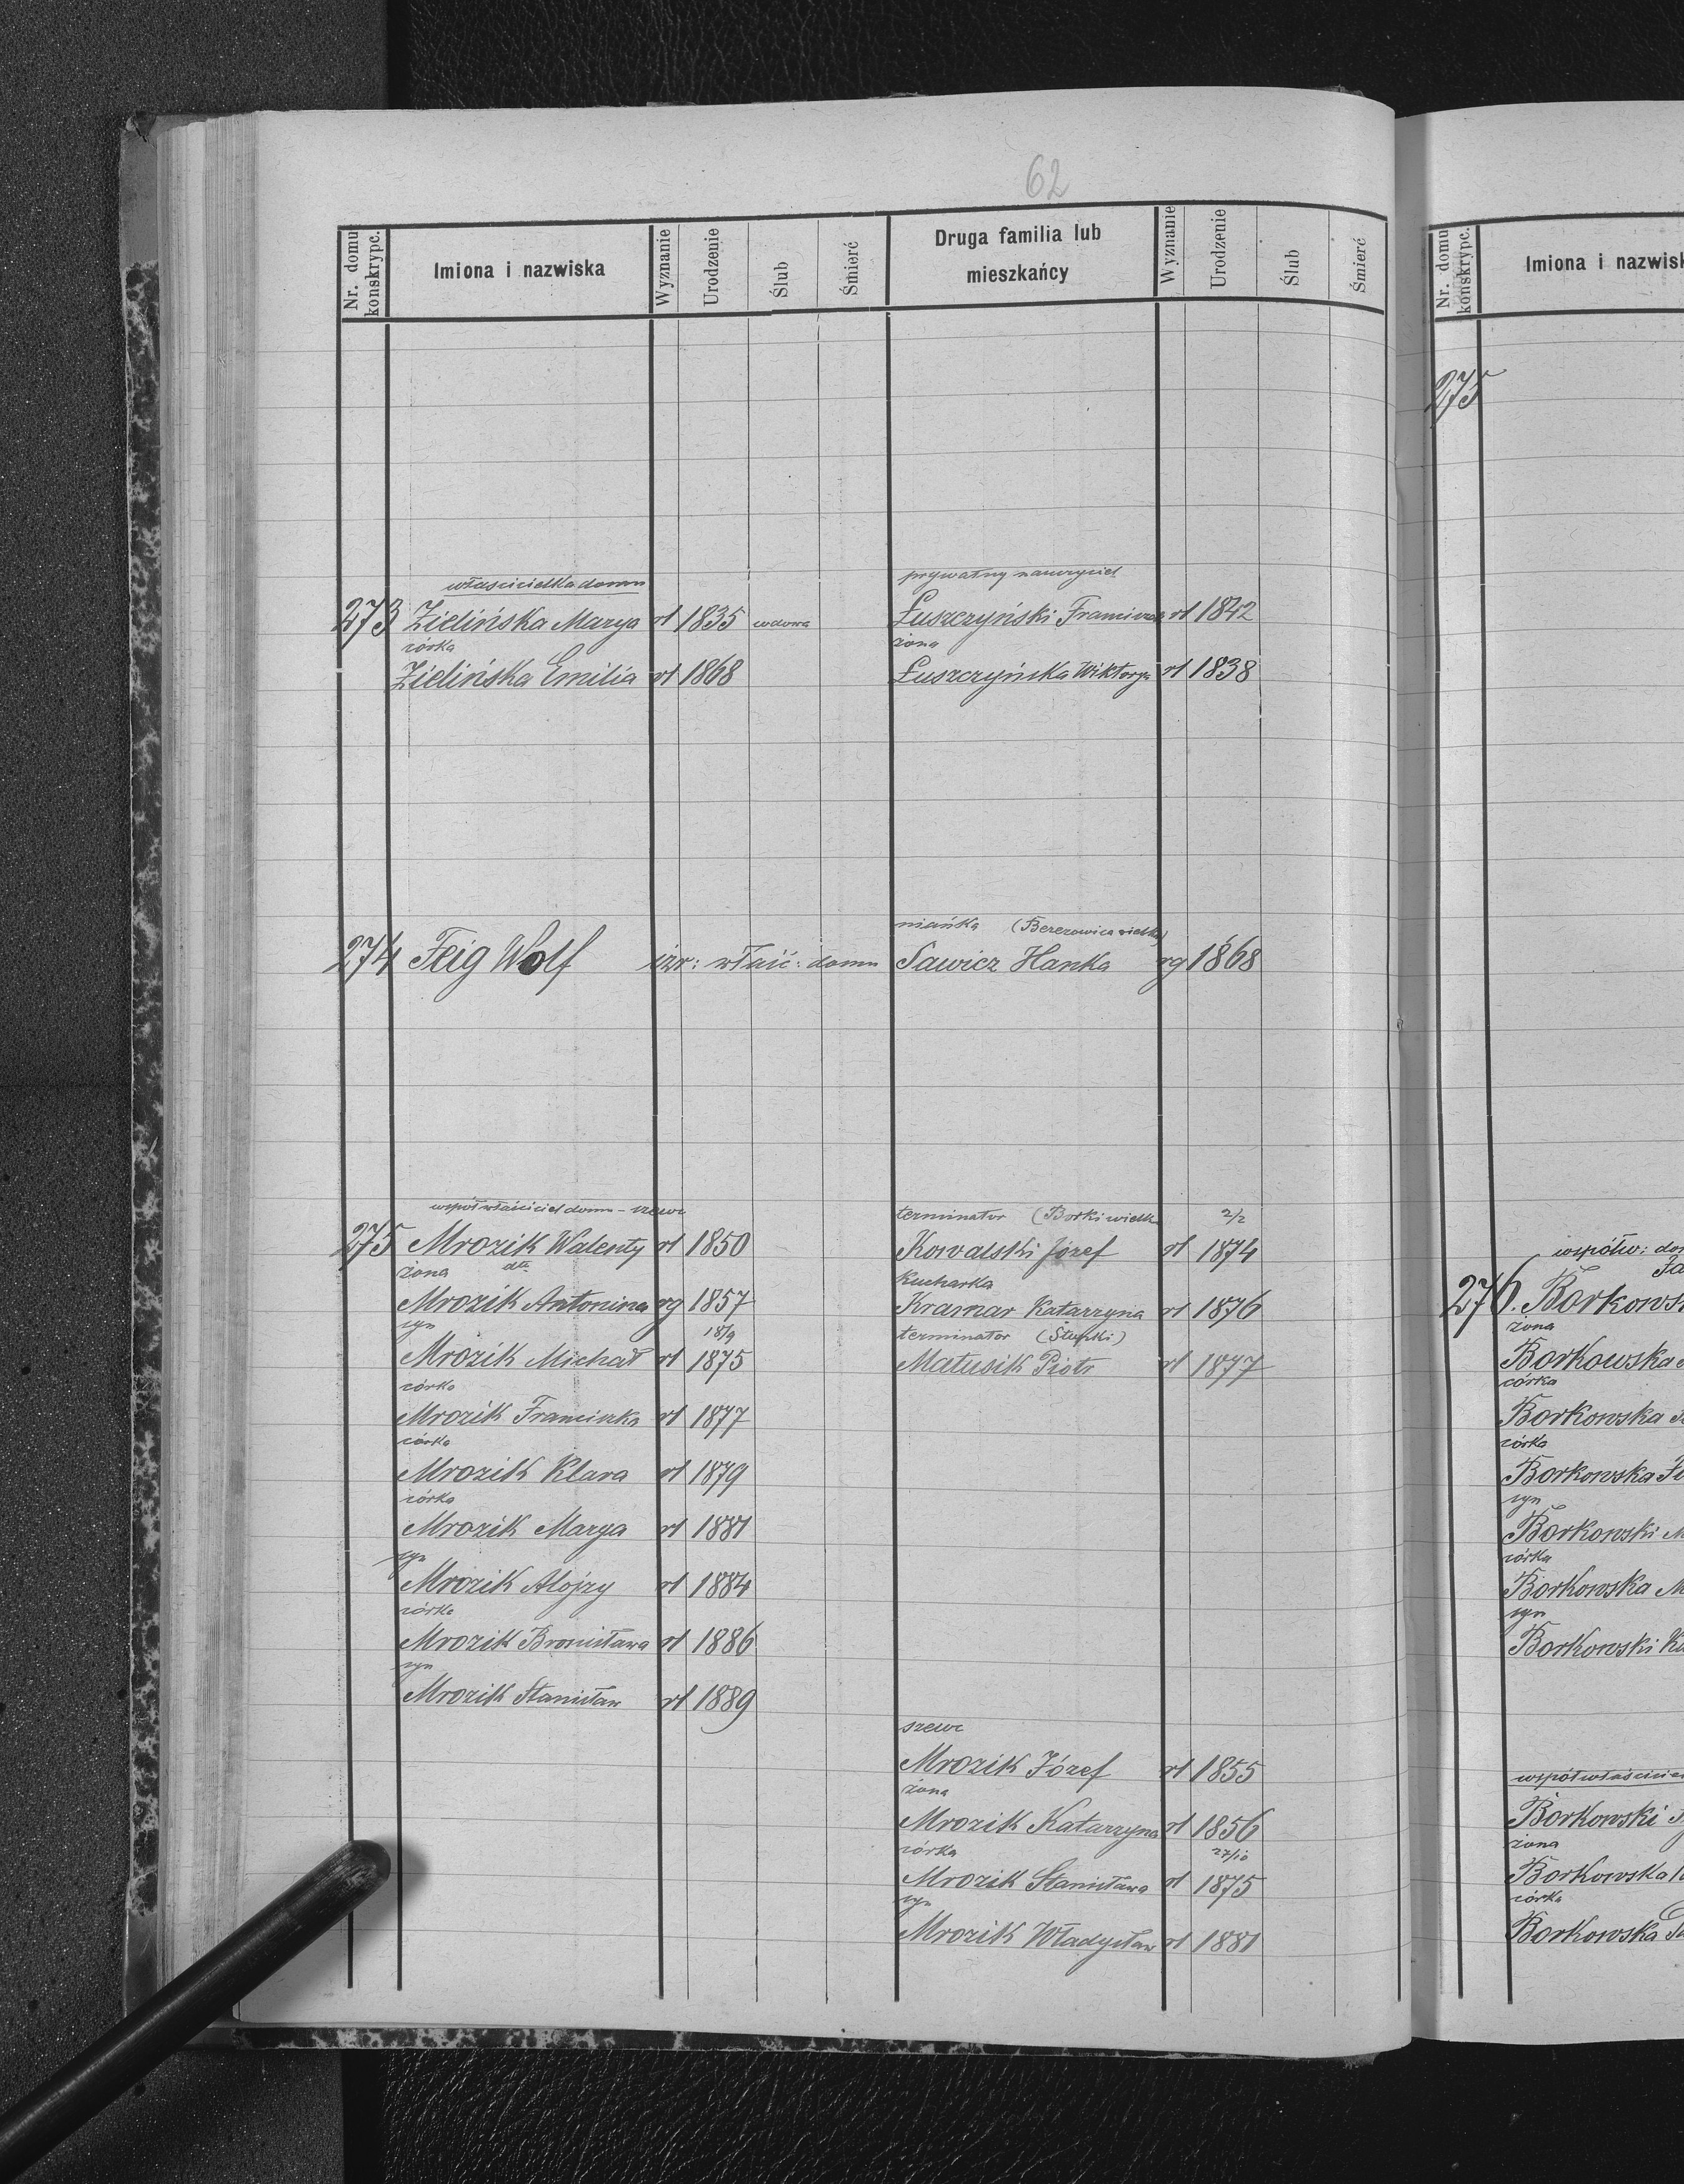 62
Nr. domu konskrypc.
Imiona i nazwiska
Wyznanie
Urodzenie
Ślub
Śmierć
Druga familia lub
mieszkańcy
Wyznanie
Urodzenie
Ślub
Śmierć
właścicielka domu
273 Zielińska Marya rł 1835 wdowa
córka
Zielińska Emilia rł 1868
prywatny nauczyciel
Łuszczyński Franciszek rł 1842
żona
Łuszczyńska Wiktorya rł 1838
274 Feig Wolf izr: właść: domu
niańka (Berezowica wielka)
Sawicz Hanka rg 1868
współwłaściciel domu - szewc
275 Mrozik Walenty rł 1850
żona dtto
Mrozik Antonina rg 1857
syn 18/9
Mrozik Michał rł 1875
córka
Mrozik Franciszka rł 1877
córka
Mrozik Klara rł 1879
córka
Mrozik Marya rł 1881
syn
Mrozik Alojzy rł 1884
córka
Mrozik Bronisława rł 1886
syn
Mrozik Stanisław rł 1889
terminator (Borki wielk 2/2
Kowalski Józef rł 1874
Kucharka
Kramar Katarzyna rł 1876
terminator (Stupki)
Matusik Piotr rł 1877
szewc
Mrozik Józef rł 1855
żona
Mrozik Katarzyna rł 1856
córka 27/10
Mrozik Stanisława rł 1875
syn
Mrozik Władysław rł 1881
Nr. domu konskrypc.
Imiona i nazwisk
275
współw: dom
276. Borkows
żona
Borkowska
córka
Borkowska
córka
Borkowska
syn
Borkowski
córka
Borkowska
syn
Borkowski
współwłaściciel
Borkowski
żona
Borkowska
córka
Borkowska